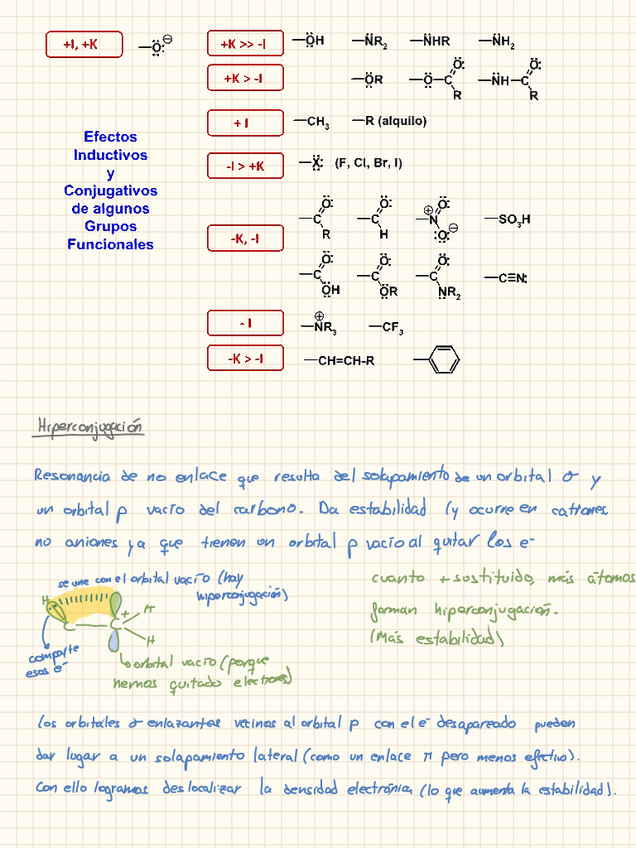 +I, +K
—Ö:⊖
+K >> -I
—ÖH —N̈R₂ —N̈HR —N̈H₂
+K > -I
—ÖR —Ö—C(=Ö:)R —N̈H—C(=Ö:)R
Efectos
Inductivos
y
Conjugativos
de algunos
Grupos
Funcionales
+ I
—CH₃ —R (alquilo)
-I > +K
—Ẍ: (F, Cl, Br, I)
-K, -I
—C(=Ö:)R —C(=Ö:)H —N⊕(=Ö:)Ö:⊖ —SO₃H
—C(=Ö:)ÖH —C(=Ö:)ÖR —C(=Ö:)N̈R₂ —C≡N:
- I
—N⊕R₃ —CF₃
-K > -I
—CH=CH-R
Hiperconjugación
Resonancia de no enlace que resulta del solapamiento de un orbital σ y
un orbital p vacío del carbono. Da estabilidad (y ocurre en cationes,
no aniones ya que tienen un orbital p vacío al quitar los e-
se une con el orbital vacío (hay
hiperconjugación)
H
C C + H
H
comparte
esos e-
orbital vacío (porque
hemos quitado electrones)
cuanto + sustituido, más átomos
forman hiperconjugación.
(Más estabilidad)
Los orbitales σ enlazantes vecinos al orbital p con el e- desapareado pueden
dar lugar a un solapamiento lateral (como un enlace π pero menos efectivo).
Con ello logramos deslocalizar la densidad electrónica (lo que aumenta la estabilidad).